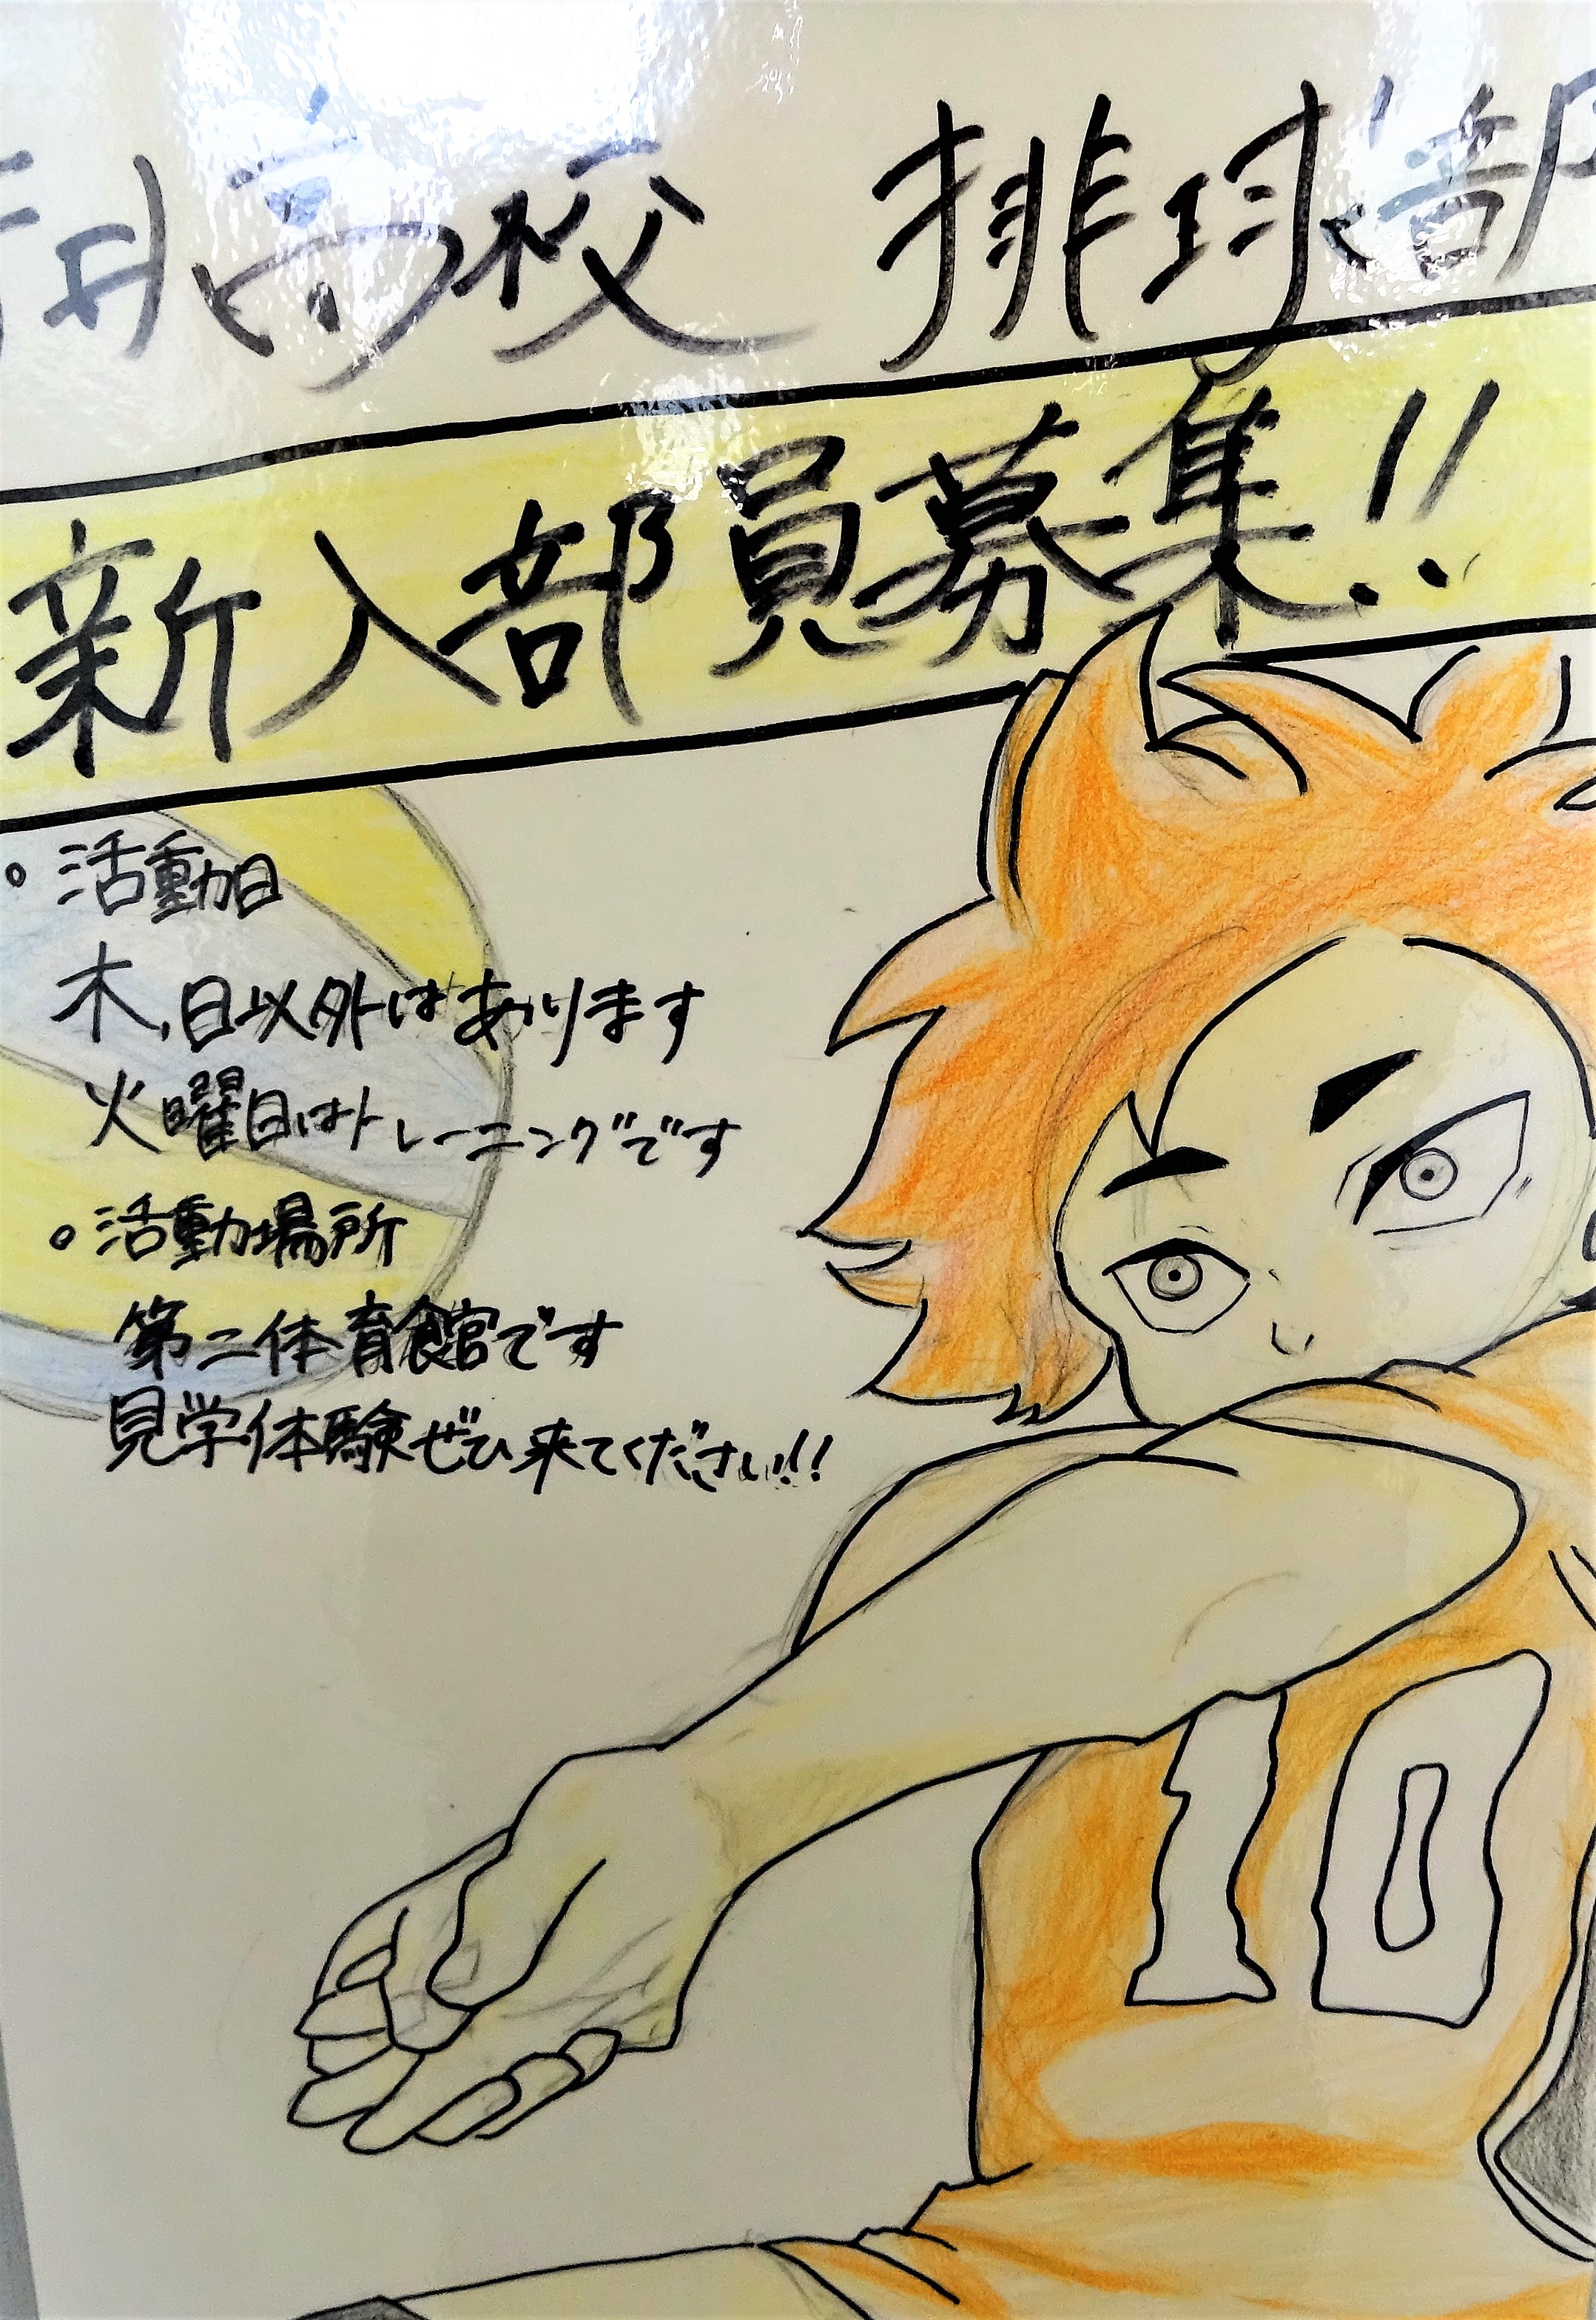 高校 排球部
新入部員募集!!
。活動日
木,日以外はあります
火曜日はトレーニングです
。活動場所
第二体育館です
見学体験ぜひ来てください!!
10